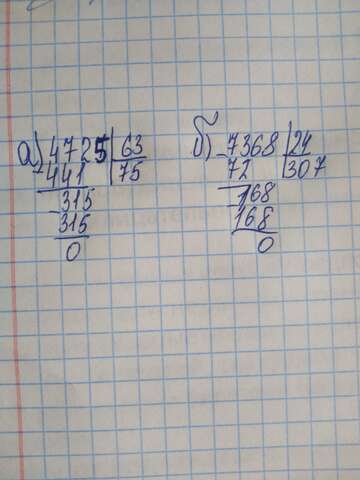 а) 4725 63
441 75
315
315
0
б) 7368 24
72 307
168
168
0